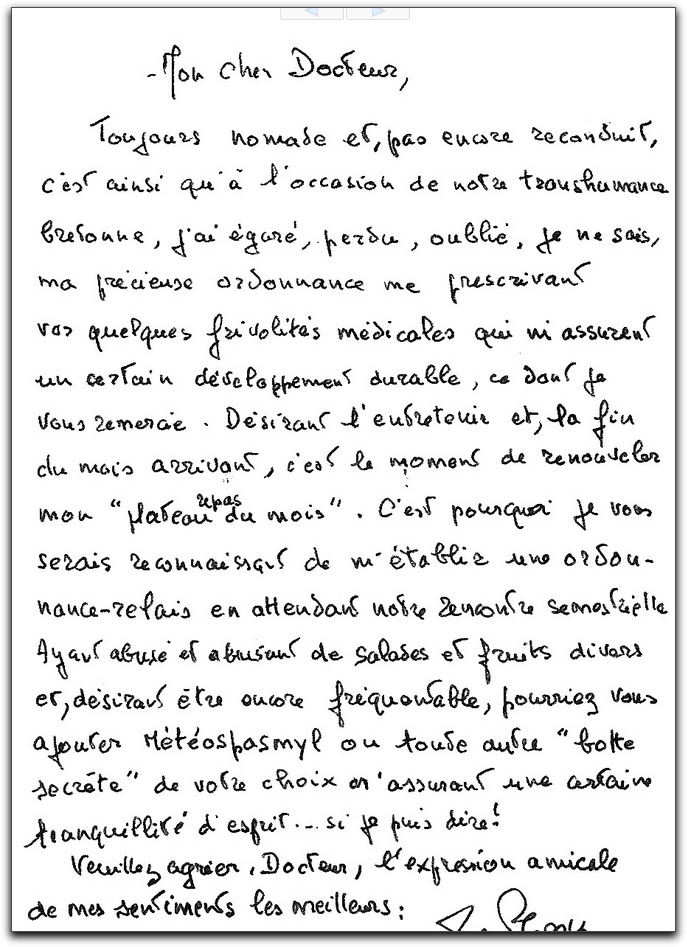 - Mon cher Docteur,
Toujours nomade et, pas encore reconduit,
c'est ainsi qu'à l'occasion de notre transhumance
bretonne, j'ai égaré, perdu, oublié, je ne sais,
ma précieuse ordonnance me prescrivant
vos quelques frivolités médicales qui m'assurent
un certain développement durable, ce dont je
vous remercie. Désirant l'entretenir et, la fin
du mois arrivant, c'est le moment de renouveler
mon "plateau repas du mois". C'est pourquoi je vous
serais reconnaissant de m'établir une ordon-
nance-relais en attendant notre rencontre semestrielle
Ayant abusé et abusant de salades et fruits divers
et, désirant être encore fréquentable, pourriez vous
ajouter Météospasmyl ou toute autre "botte
secrète" de votre choix m'assurant une certaine
tranquillité d'esprit... si je puis dire!
Veuillez agréer, Docteur, l'expression amicale
de mes sentiments les meilleurs :